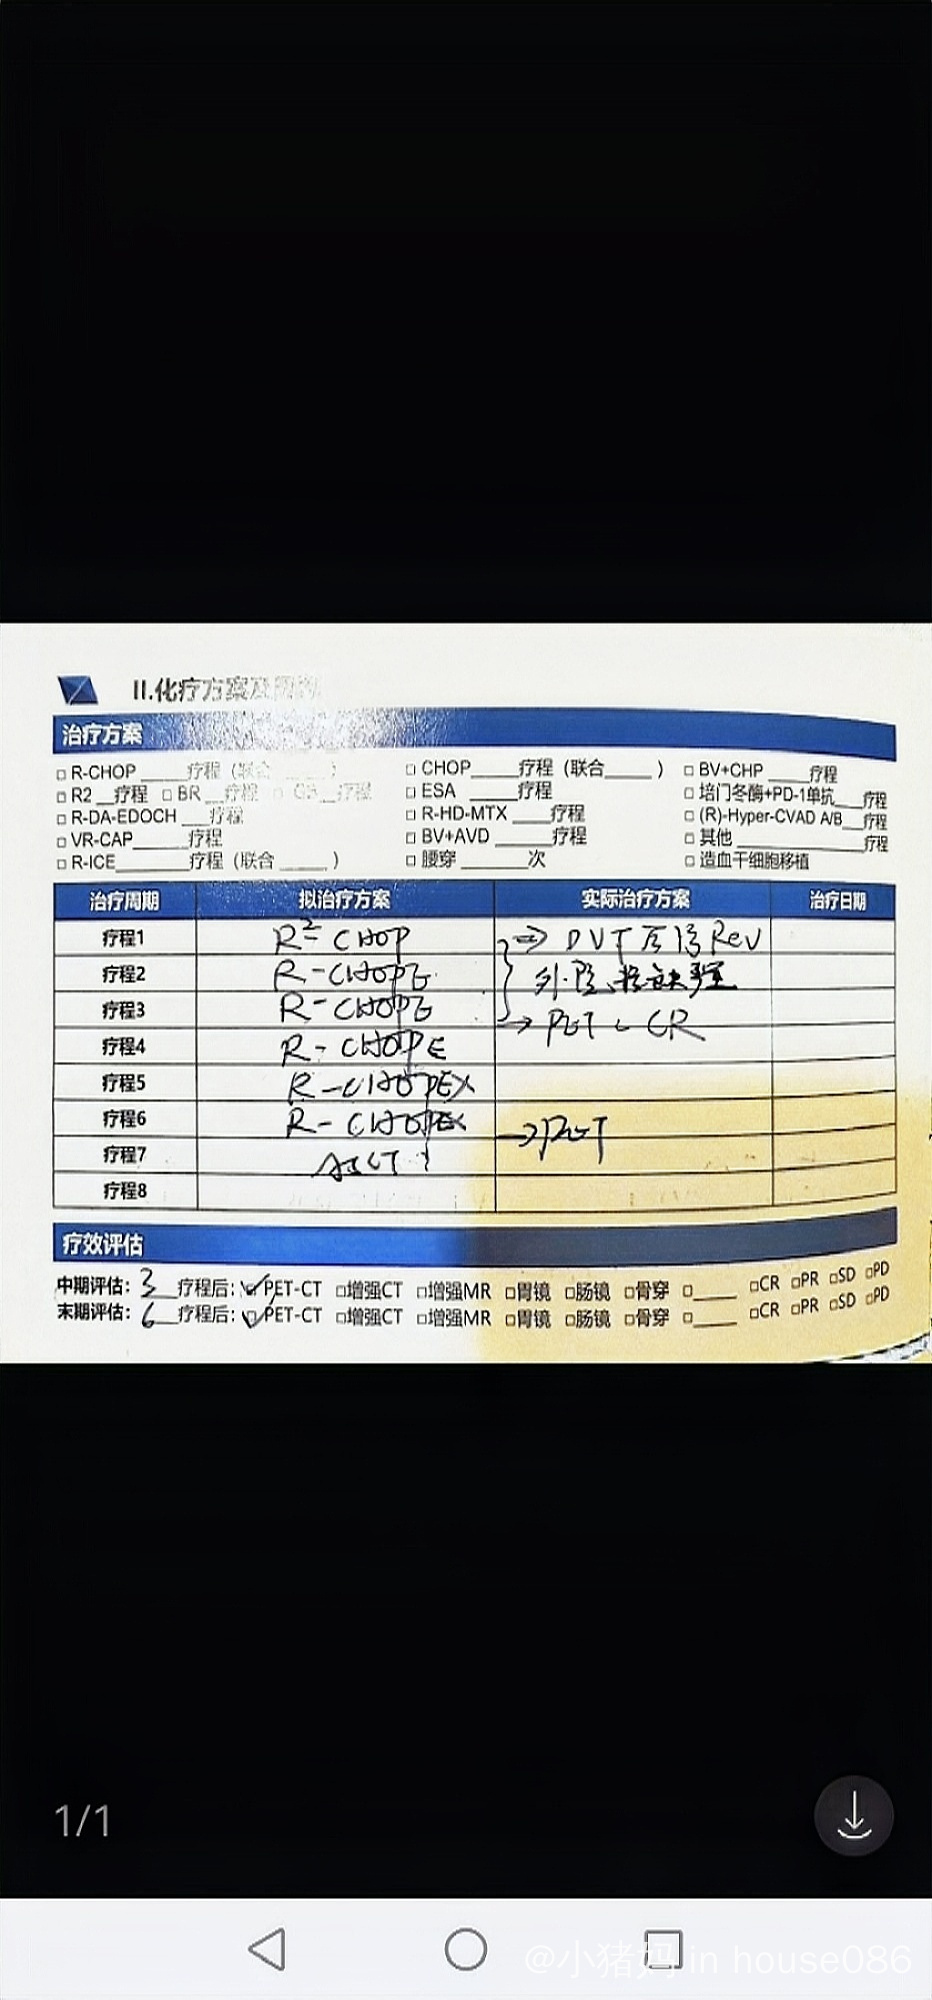 II.化疗方案及
治疗方案
□ R-CHOP _____疗程（联合_____）
□ CHOP_____疗程（联合______）
□ BV+CHP _____疗程
□ R2 __疗程 □ BR __疗程 □ GB__疗程
□ ESA _____疗程
□ 培门冬酶+PD-1单抗___疗程
□ R-DA-EDOCH ___疗程
□ R-HD-MTX ____疗程
□ (R)-Hyper-CVAD A/B__疗程
□ VR-CAP______疗程
□ BV+AVD ______疗程
□ 其他 ______________疗程
□ R-ICE________疗程（联合_____）
□ 腰穿 _______次
□ 造血干细胞移植
治疗周期 拟治疗方案 实际治疗方案 治疗日期
疗程1 R²-CHOP => DVT 后停 Rev
疗程2 R-CHOPE 外院
疗程3 R-CHOPE → PET CR
疗程4 R-CHOPE
疗程5 R-CHOPEX
疗程6 R-CHOPEX → PET
疗程7 ASCT ?
疗程8
疗效评估
中期评估: 3 疗程后: ☑PET-CT □增强CT □增强MR □胃镜 □肠镜 □骨穿 □____ □CR □PR □SD □PD
末期评估: 6 疗程后: ☑PET-CT □增强CT □增强MR □胃镜 □肠镜 □骨穿 □____ □CR □PR □SD □PD
1/1
@小猪妈 in house086